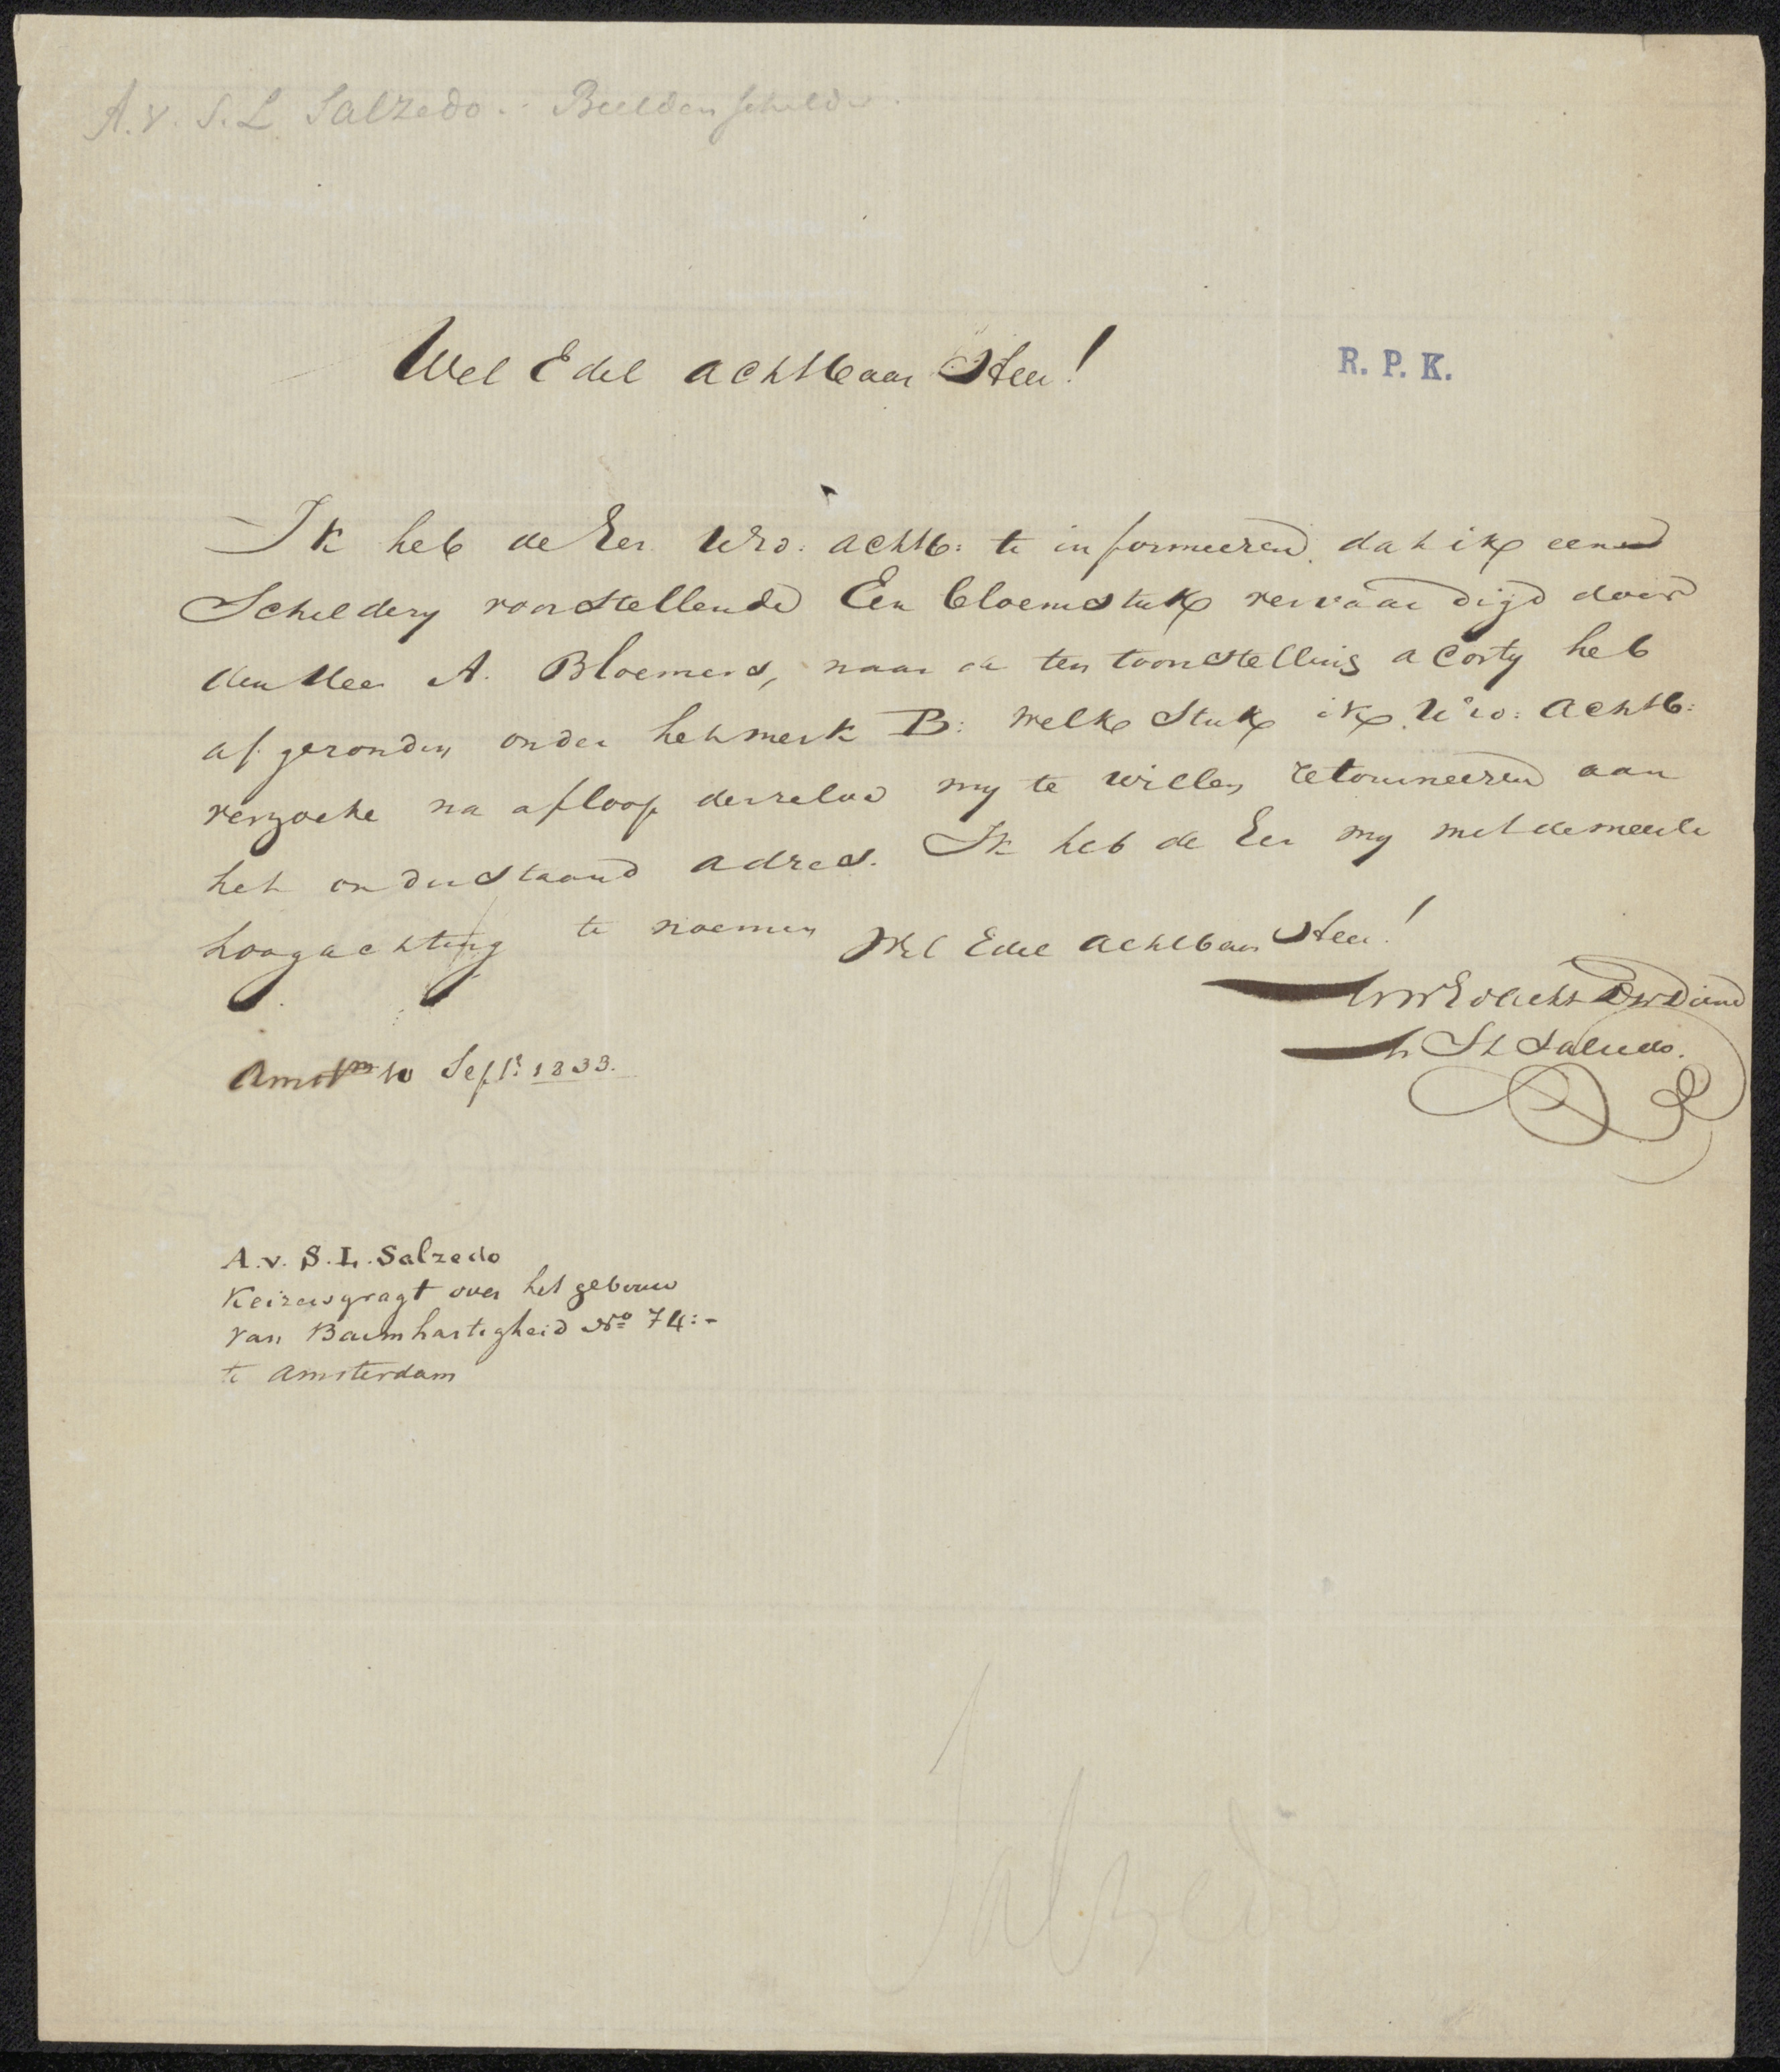 A. v. S. L. Salzedo. Beeldenschilder.
Wel Edel achtbaar Heer!
R. P. K.
Ik heb de Eer UEd: achtb: te informeeren dat ik eene
Schildery voorstellende Een bloemstuk vervaardigd door
den Heer A. Bloemers, naar de ten toonstelling a Costy heb
af gezonden onder het merk B: welk Stuk ik UEd: achtb:
verzoeke na afloop derzelve my te willen retourneeren aan
het onderstaand adres. Ik heb de Eer my met de meeste
hoogachting te noemen Wel Edel achtbaar Heer!
UwEd acht DwDiend
S L Salzedo.
Amstm 10 Septr 1833.
A. v. S. L. Salzedo
Keizersgragt over het gebouw
van Barmhartigheid No 74:-
te Amsterdam
Salzedo